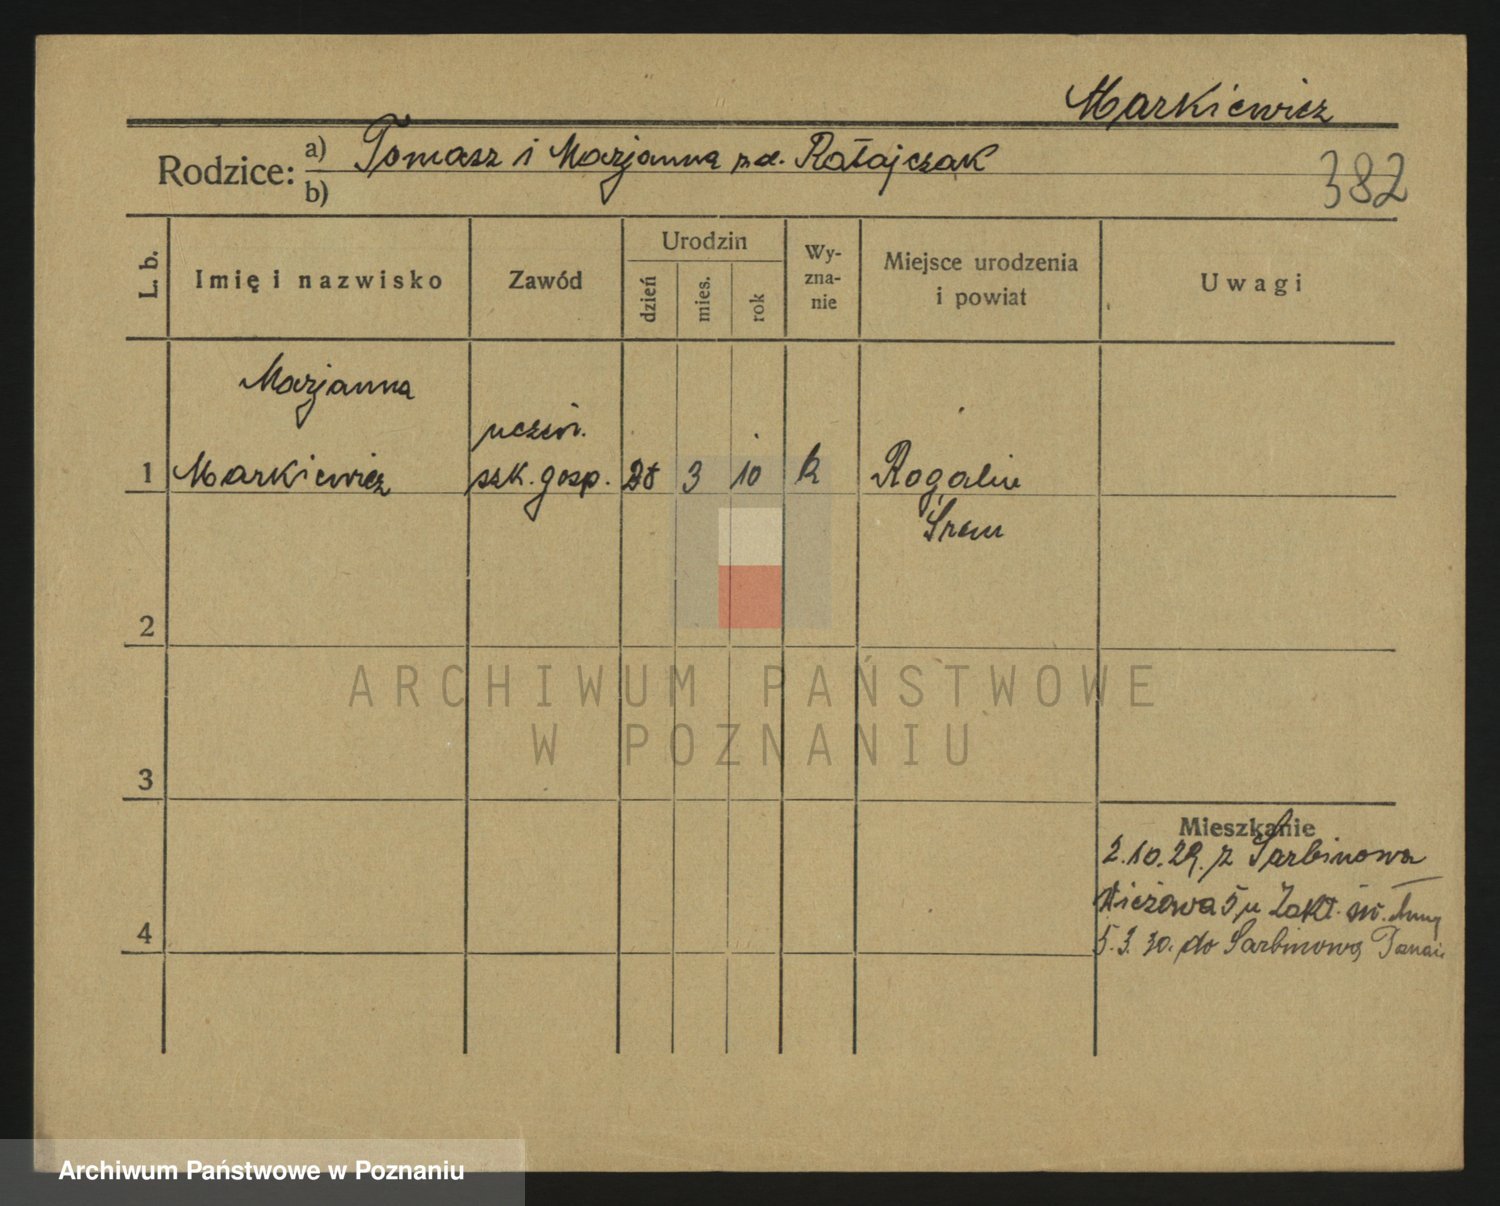 Markiewicz
Rodzice: a) Tomasz i Marjanna zd. Ratajczak
b)
382
L. b.
Imię i nazwisko
Zawód
Urodzin
dzień
mies.
rok
Wy-
zna-
nie
Miejsce urodzenia
i powiat
Uwagi
Marjanna
uczen.
1 Markiewicz szk. gosp. 28 3 10 k Rogalin
Śrem
2
3
4
Mieszkanie
2.10.29. z Sarbinowa
Wieżowa 5 u Zakł. św. Anny
5.3.30. do Sarbinowa, Poznań
ARCHIWUM PAŃSTWOWE
W POZNANIU
Archiwum Państwowe w Poznaniu